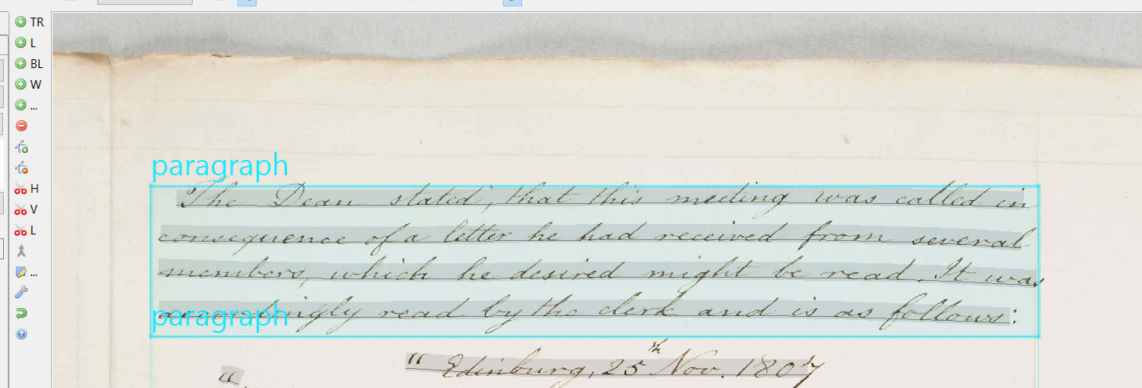 TR
L
BL
W
...
H
V
L
...
paragraph
The Dean stated, that this meeting was called in
consequence of a letter he had received from several
members, which he desired might be read. It was
paragraph
accordingly read by the clerk and is as follows:
"Edinburg, 25th Nov. 1807
"